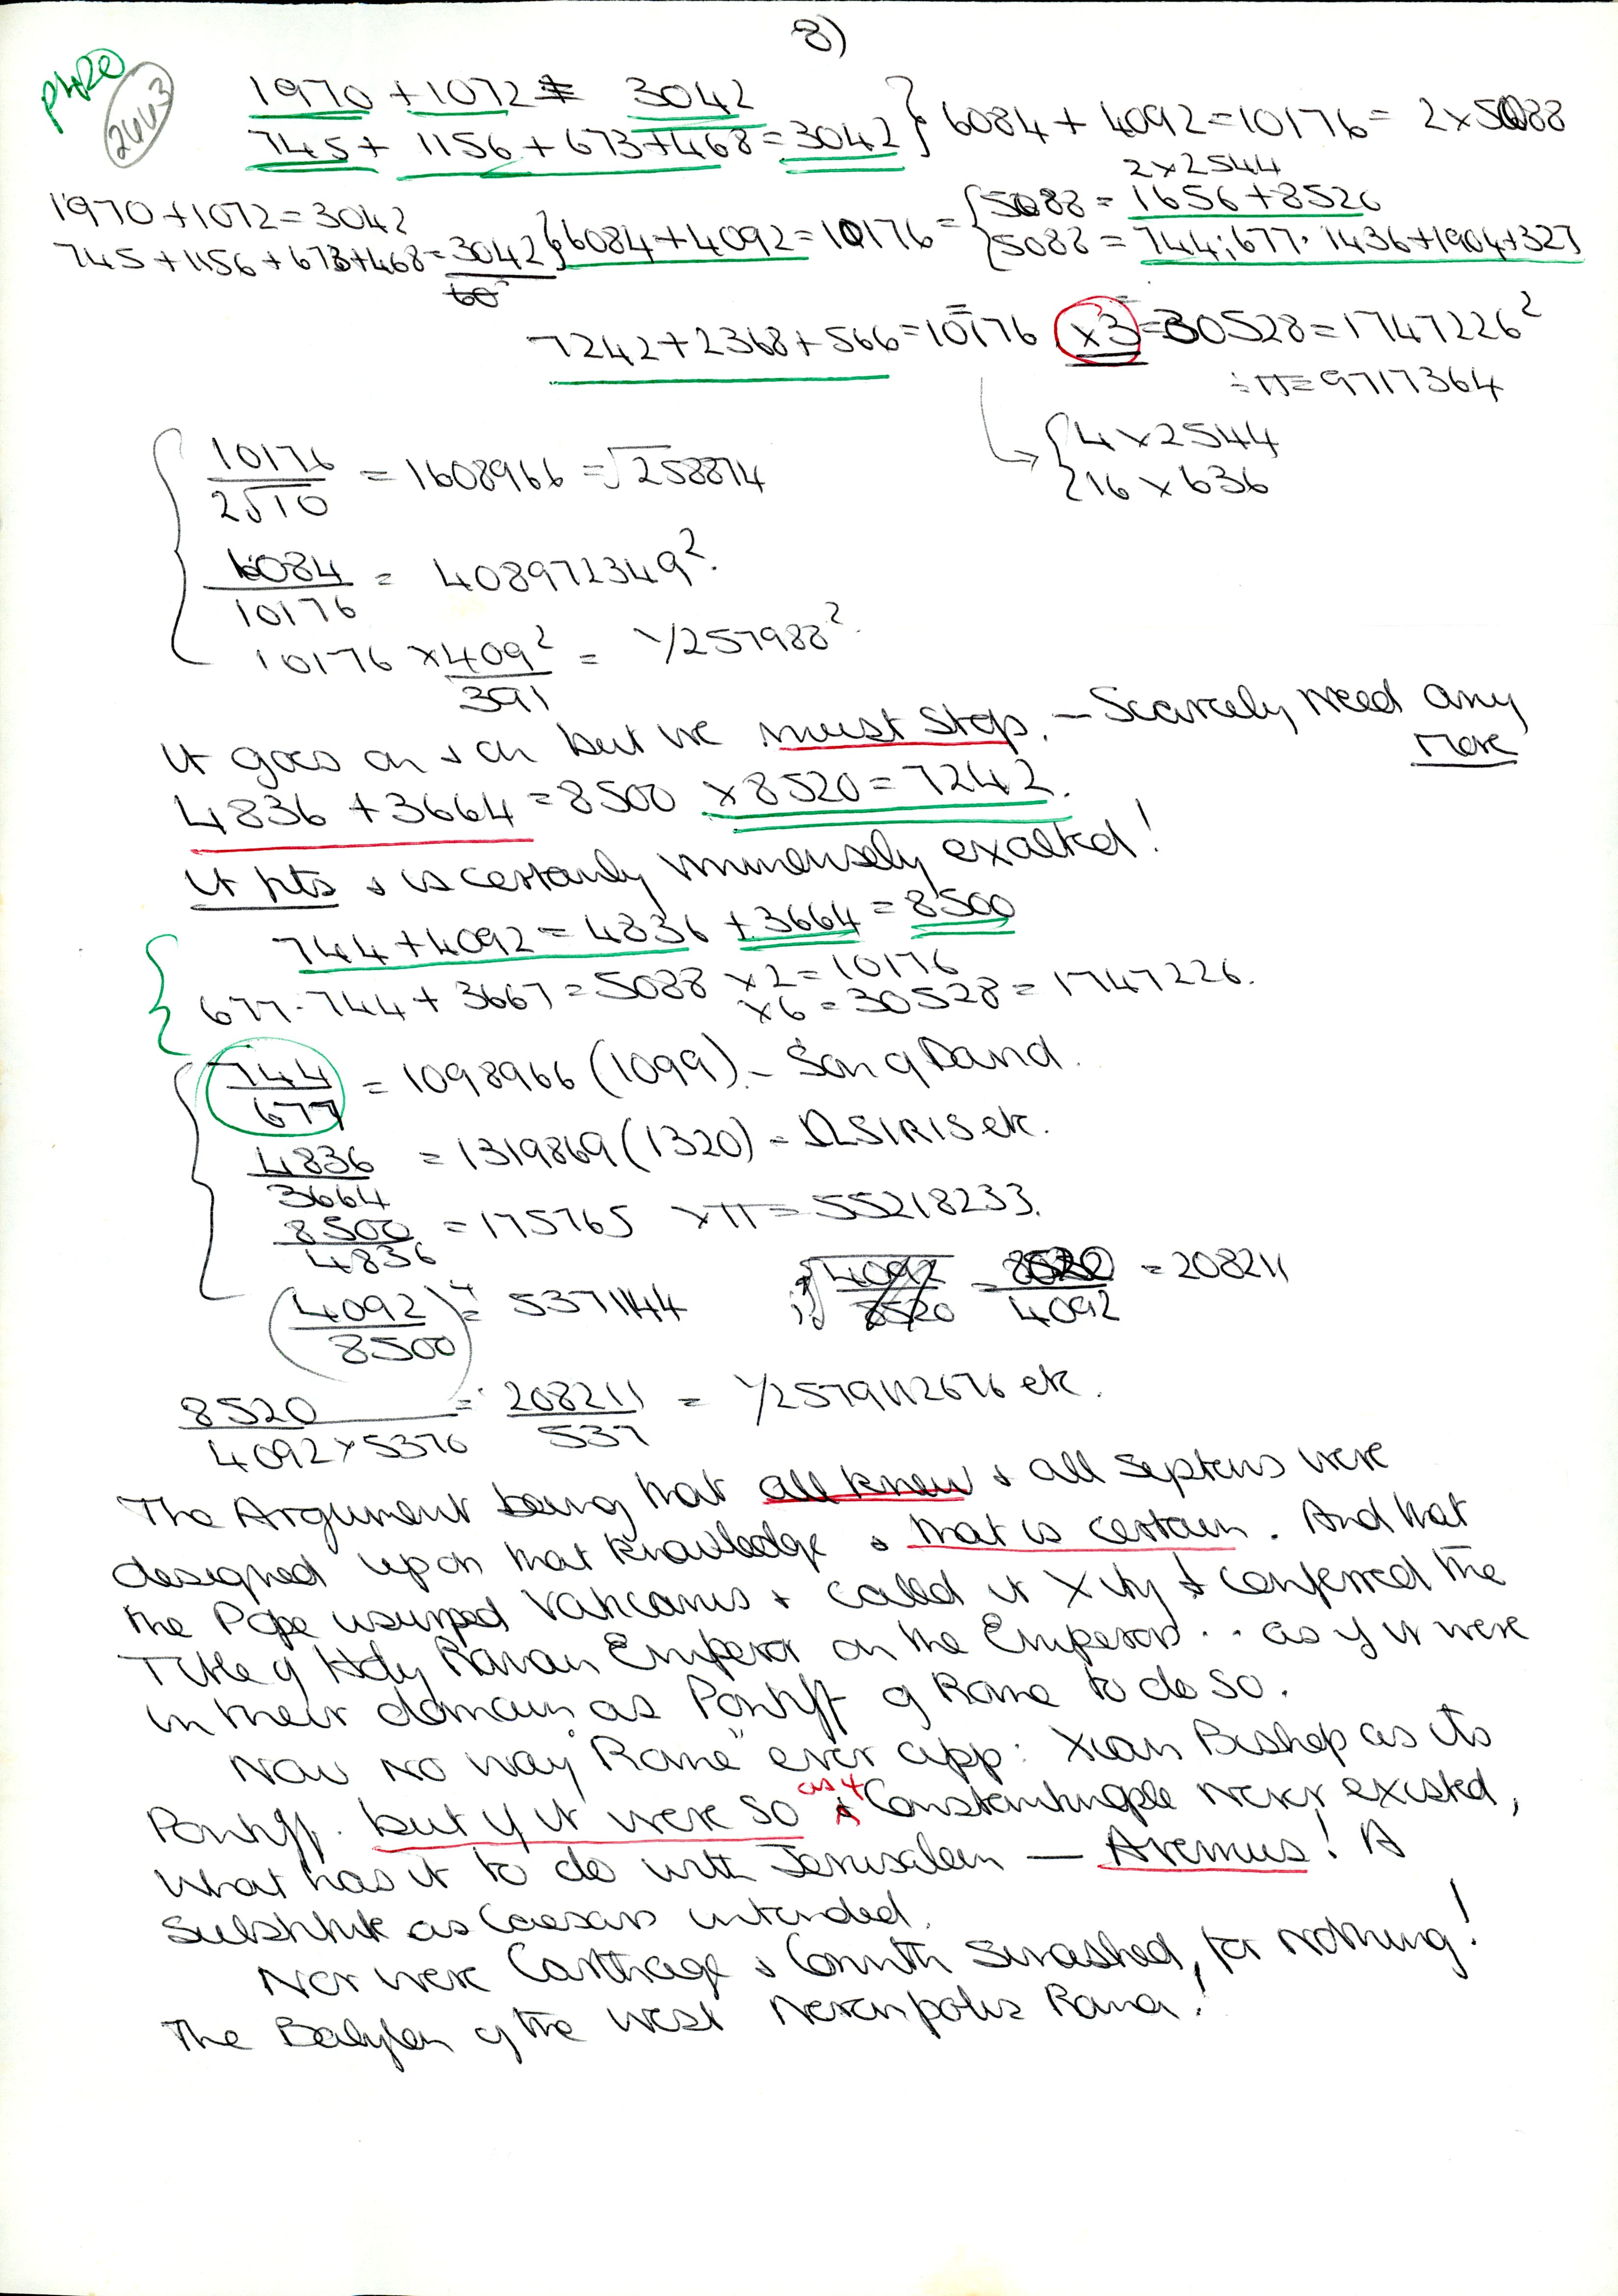 8)
P420
2663
1970 + 1072 = 3042
745 + 1156 + 673 + 468 = 3042 } 6084 + 4092 = 10176 = 2 x 5088
2 x 2544
1970 + 1072 = 3042
745 + 1156 + 673 + 468 = 3042 } 6084 + 4092 = 10176 = { 5088 = 1656 + 8526
5088 = 744; 677. 1436 + 1904 + 327
60
7242 + 2368 + 566 = 10176 x3 = 30528 = 1747226²
÷ π = 9717364
4 x 2544
16 x 636
10176 / 2√10 = 1608966 = √258874
6084 / 10176 = 408972349².
10176 x 409² / 391 = 1/257988².
It goes on & on but we must stop. — Scarcely need any
more
4836 + 3664 = 8500 x 8520 = 7242.
It fits & is certainly immensely exalted!
744 + 4092 = 4836 + 3664 = 8500
677. 744 + 3667 = 5088 x 2 = 10176
x 6 = 30528 = 1747226.
744 / 677 = 1098966 (1099) - Son of David.
4836 / 3664 = 1319869 (1320) - ΩSIRIS etc.
8500 / 4836 = 175765 x π = 55218233.
(4092 / 8500)⁴ = 5371144
√4092 / 8520 = 8520 / 4092 = 208211
8520 / 4092 x 5376 = 208211 / 537 = 1/2579112676 etc.
The Argument being that all knew & all systems were
designed upon that knowledge & that is certain. And that
the Pope usurped Vaticanus & called it Xity & conferred the
Title of Holy Roman Emperor on the Emperors .. as if it were
in their domain as Pontiff of Rome to do so.
Now no way "Rome" ever app: Xian Bishop as its
Pontiff. but if it were so as & Constantinople never existed,
What has it to do with Jerusalem — Aremus! A
Substitute as Caesars intended.
Nor were Carthage & Corinth smashed, for nothing!
The Babylon of the West Neronpolis Roma!